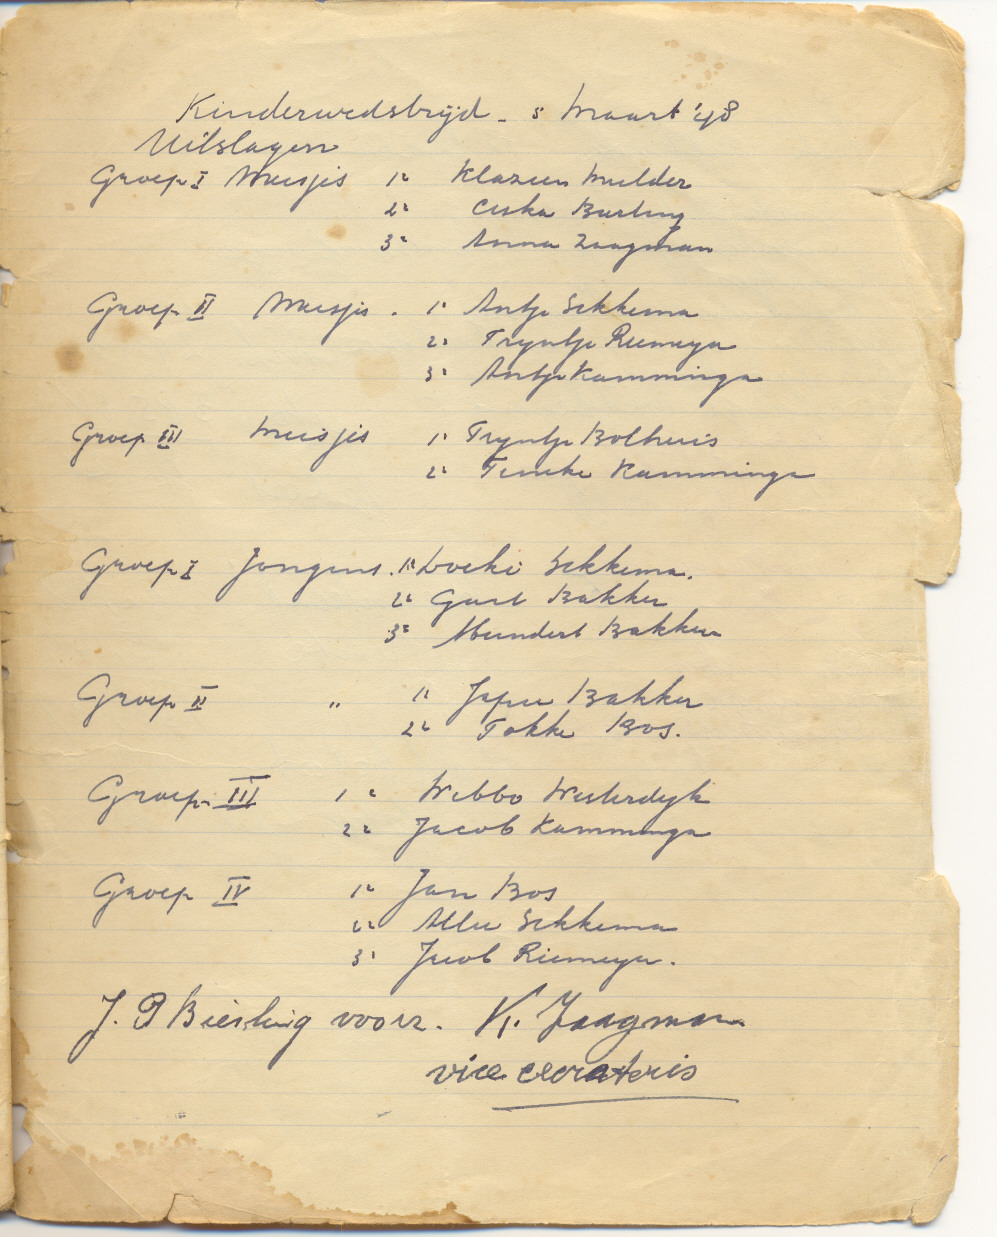 Kinderwedstrijd - s Maart '48
Uitslagen
Groep I Meisjes 1e Klazien Mulder
2e Ciska Burling
3e Anna Zaagman
Groep II Meisjes. 1e Antje Sekkema
2e Tryntje Riemeyer
3e Antje Kamminga
Groep III Meisjes 1e Tryntje Bolhuis
2e Tineke Kamminga
Groep I Jongens. 1e Doeki Sekkema.
2e Geert Bakker
3e Meindert Bakker
Groep II " 1e Bakker
2e Fokke Bos.
Groep III 1e Webbo Westerdyk
2e Jacob Kamminga
Groep IV 1e Jan Bos
2e Sekkema
3e Jacob Riemeyer.
J. P Biesling voorz. K. Zaagman
vice secretaris